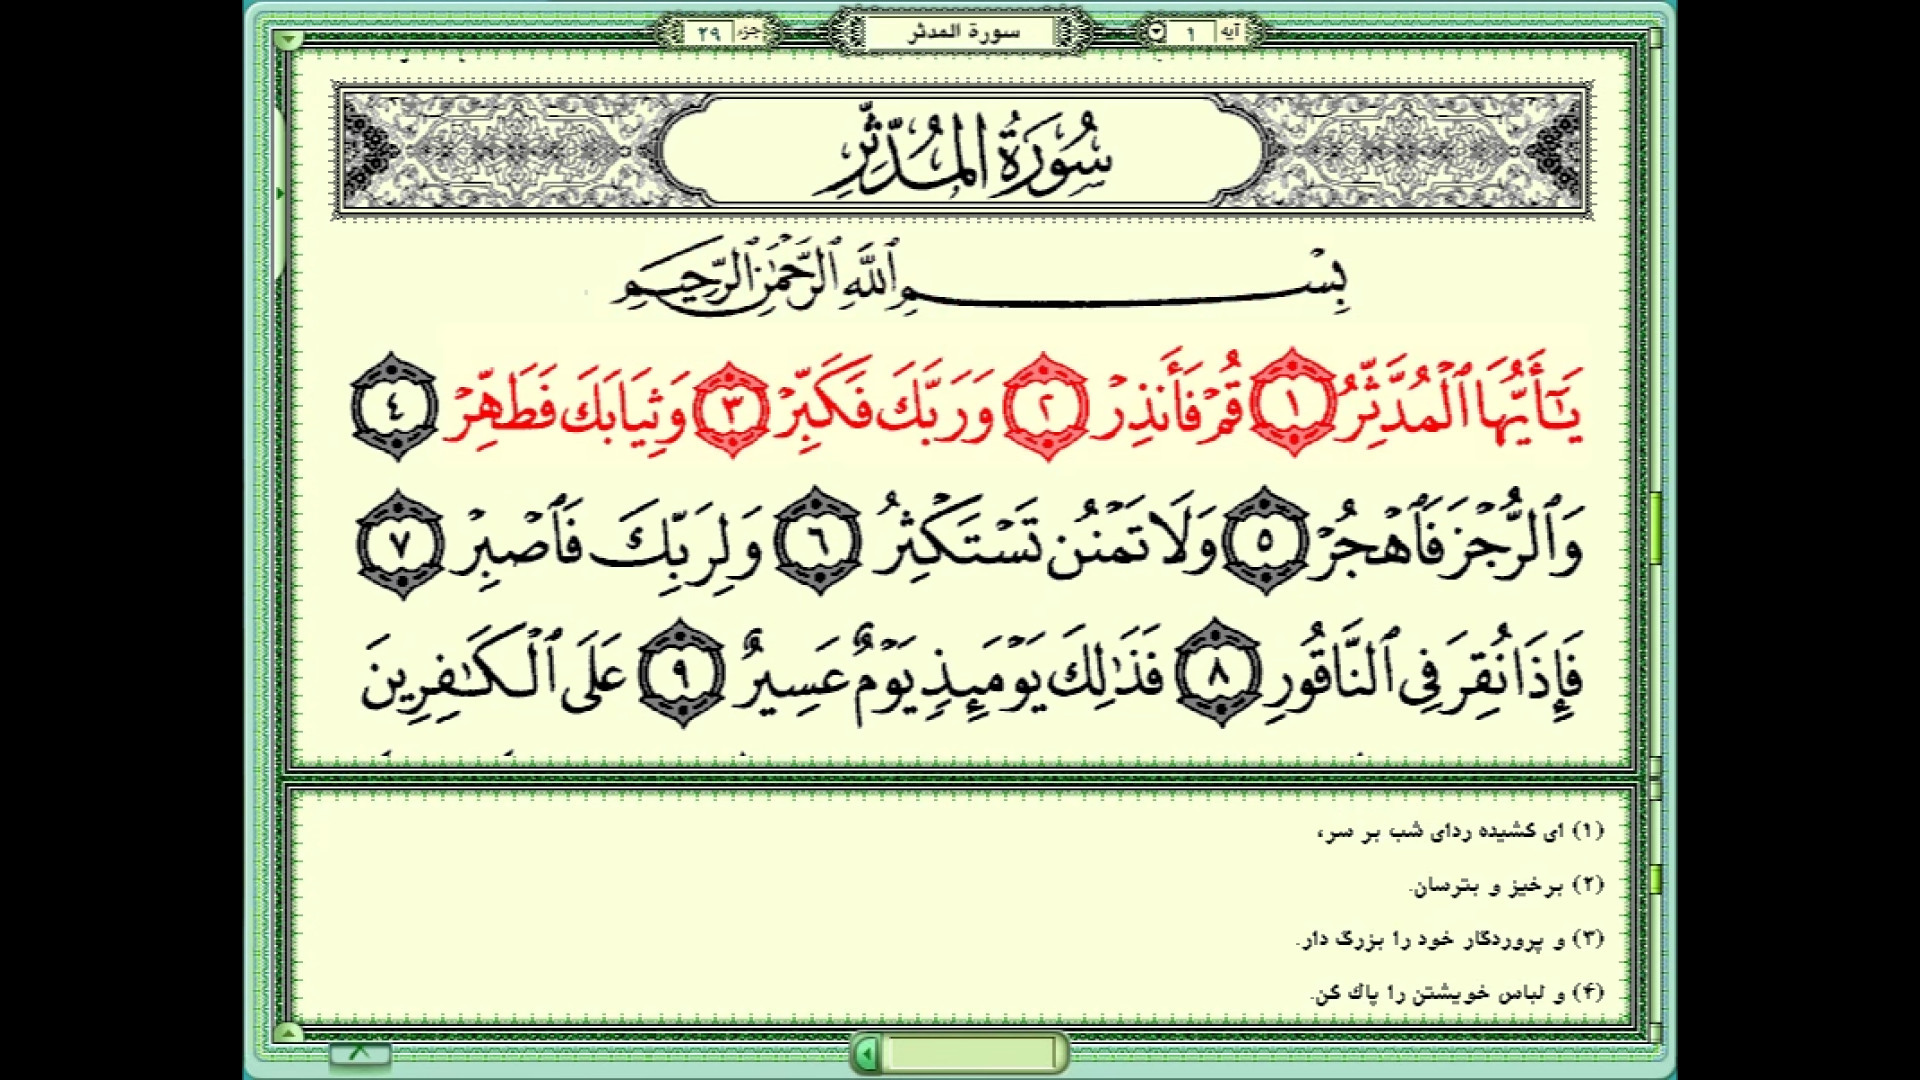 آیه ۱ سورة المدثر جزء ۲۹
سُورَةُ الْمُدَّثِّرِ
بِسْمِ ٱللَّهِ ٱلرَّحْمَٰنِ ٱلرَّحِيمِ
يَٰٓأَيُّهَا ٱلْمُدَّثِّرُ ١ قُمْ فَأَنذِرْ ٢ وَرَبَّكَ فَكَبِّرْ ٣ وَثِيَابَكَ فَطَهِّرْ ٤
وَٱلرُّجْزَ فَٱهْجُرْ ٥ وَلَا تَمْنُن تَسْتَكْثِرُ ٦ وَلِرَبِّكَ فَٱصْبِرْ ٧
فَإِذَا نُقِرَ فِى ٱلنَّاقُورِ ٨ فَذَٰلِكَ يَوْمَئِذٍ يَوْمٌ عَسِيرٌ ٩ عَلَى ٱلْكَٰفِرِينَ
(۱) ای کشیده ردای شب بر سر،
(۲) برخیز و بترسان.
(۳) و پروردگار خود را بزرگ دار.
(۴) و لباس خویشتن را پاک کن.